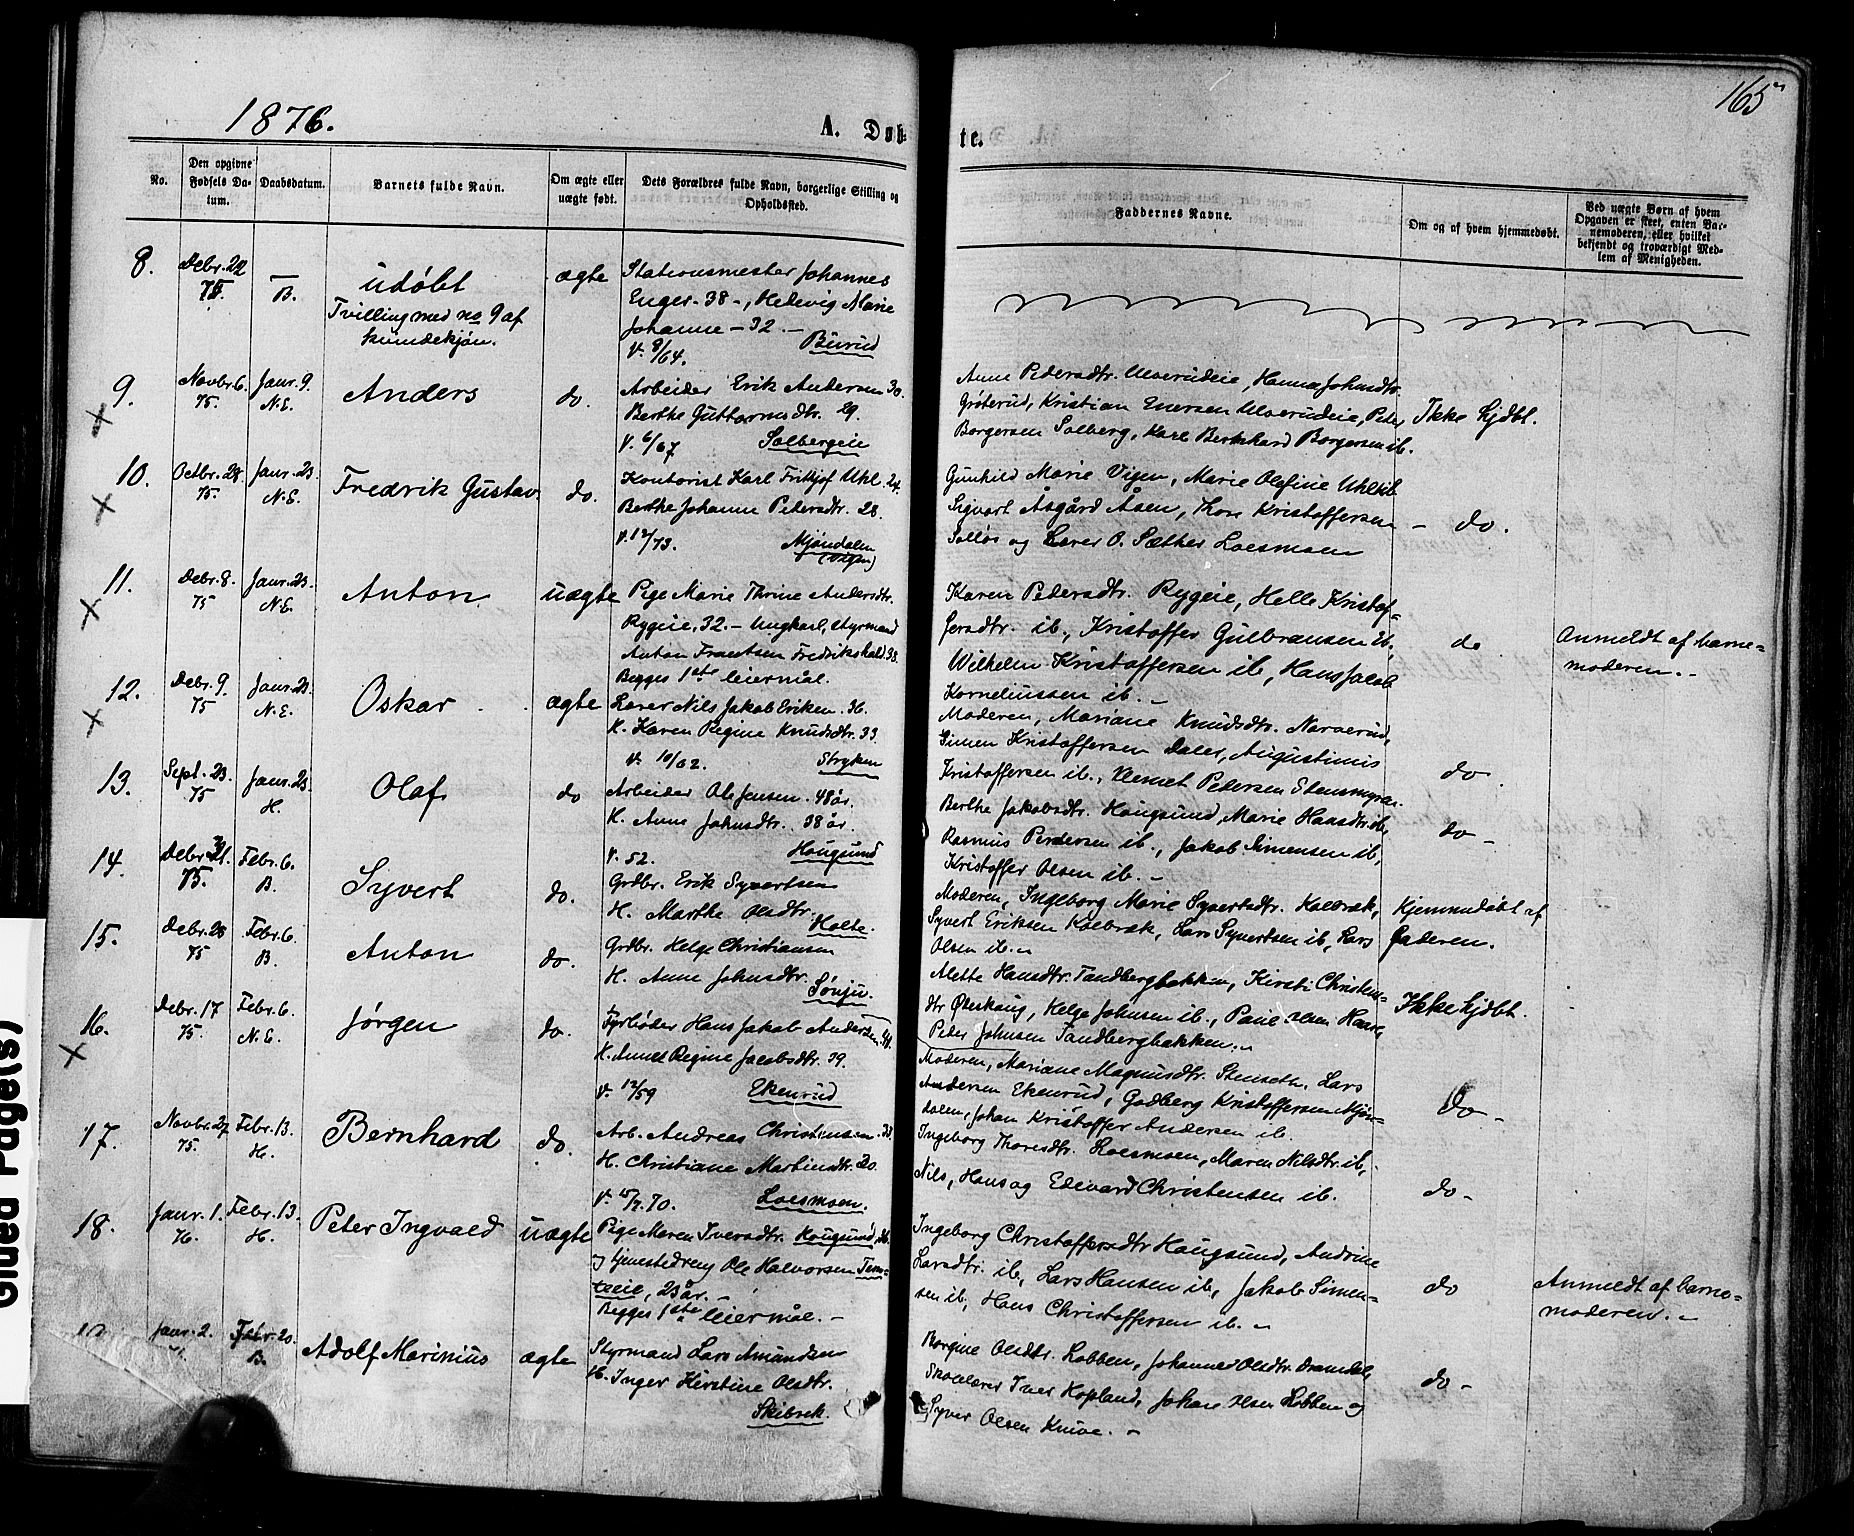 165
1876.
A. Døb-
te.
No.
Den opgivne Fødsels Da-
tum.
Daabsdatum.
Barnets fulde Navn.
Om ægte eller
uægte født.
Dets Forældres fulde Navn, borgerlige Stilling og
Opholdssted.
Faddernes Navne.
Om og af hvem hjemmedøbt.
Ved uægte Børn af hvem
Opgaven er skeet, enten Bar-
nemoderen, eller hvilket
bekjendt og troværdigt Med-
lem af Menigheden.
8.
Debr. 22
75.
—
B.
udøbt
Tvilling med no 9 af
kvindekjøn.
ægte
Stationsmester Johannes
Enger. 38 -, Hedvig Marie
Johanne - 32. -
V. 8/64. Burud
9.
Novbr. 6.
75.
Janr. 9.
N.E.
Anders
do.
Arbeider Erik Andersen 30.
Berthe Guttormsdtr. 29.
V. 6/67 Solbergeie
Anne Pedersdtr. Ulverudeie, Hanna Johnsdtr.
Grøterud, Kristian Enersen Ulverudeie, Peter
Borgersen Solberg, Karl Bernhard Borgersen ib.
Ikke hjdbt.
10.
Octbr. 28.
75.
Janr. 23.
N.E.
Fredrik Gustav
do.
Kontorist Karl Frithjof Uhl. 24.
Berthe Johanne Pedersdtr. 28.
V. 12/73. Mjøndalen
(Vigen)
Gunhild Marie Vigen, Marie Olefine Uhl ib.
Sigvart Åsgård Åsen, Thor Kristoffersen
Solløs og Lærer O. Sæther Loesmoen
- do.
11.
Debr. 8.
75
Janr. 23.
N.E.
Anton
uægte
Pige Marie Thrine Andersdtr.
Rygeie, 32. - Ungkarl, styrmand
Anton Frantsen Fredrikshald 38.
Begges 1ste leiermål.
Karen Pedersdtr. Rygeie, Helle Kristof-
fersdtr. ib., Kristoffer Gulbransen ib,
Wilhelm Kristoffersen ib, Hans Jacob
Korneliussen ib. -
do
Anmeldt af barne-
moderen. -
12.
Debr. 9.
75
Janr. 23.
N.E.
Oskar
ægte
Lærer Nils Jakob Eriksen. 36.
H. Karen Regine Knudsdtr. 33.
V. 10/62. Stryken
Moderen, Mariane Knudsdtr. Narverud,
Simen Kristoffersen Daler, Augustinus
Kristoffersen ib., Klemet Pedersen Stensmyra.
do.
13.
Sept. 23.
75
Janr. 23.
H.
Olaf
do
Arbeider Ole Jensen. 48 år.
H. Anne Johnsdtr. 38 år.
V. 52. Hougsund
Berthe Jakobsdtr. Hougsund, Marie Hansdtr. ib,
Rasmus Pedersen ib., Jakob Simensen ib,
Kristoffer Olsen ib. -
do -
14.
Debr. 31.
75.
Febr. 6.
B.
Syvert
do.
Grdbr. Erik Syvertsen
H. Marthe Olsdtr.
Holte.
Moderen, Ingeborg Marie Syvertsdtr. Kolbræk,
Syvert Eriksen Kolbræk, Lars Syvertsen ib, Lars
Olsen ib. -
Hjemmedøbt af
Faderen.
15.
Debr. 28
75
Febr. 6.
B.
Anton
do.
Grdbr. Helge Christiansen
H. Anne Johnsdtr.
Sønju.
Alette Hansdtr. Tandbergbakken, Kirsti Christens-
dtr Øvrehaug, Helge Johnsen ib., Paul Olsen
Peter Johnsen Tandbergbakken. -
Ikke hjdbt.
16.
Debr. 17
75.
Febr. 6.
N.E.
Jørgen
do.
Fyrbøder Hans Jakob Andersen 41.
H. Anne Regine Jacobsdtr. 39.
V. 12/59 Ekenrud
Moderen, Mariane Magnusdtr. Stenseth, Lars
Andersen Ekenrud, Gudberg Kristoffersen Mjøn-
dalen, Johan Kristoffer Andersen ib.
do -
17.
Novbr. 27
75.
Febr. 13.
H.
Bernhard
do.
Arb. Andreas Christensen. 33.
H. Christiane Martinsdtr. 30.
V. 15/7. 70. Loesmoen.
Ingeborg Thoresdtr. Loesmoen, Maren Nilsdtr. ib,
Nils, Hans og Edevard Christensen ib.
do -
18.
Janr. 1.
76.
Febr. 13.
H.
Peter Ingvald
uægte
Pige Maren Iversdtr. Hougsund, 26.
og tjenestedreng Ole Halvorsen Tem-
teeie, 23 år. -
Begges 1ste leiermål. -
Ingeborg Christoffersdtr Hougsund, Andrine
Larsdtr. ib, Lars Hansen ib, Jakob Simen-
sen ib, Hans Christoffersen ib. -
do
Anmeldt af barne-
moderen. -
19.
Janr. 2.
Febr. 20.
B.
Adolf Marinius
ægte
Styrmand Lars Amundsen
H. Inger Kirstine Olsdtr.
Skibvek.
Borgine Olsdtr. Lobben, Johanne Olsdtr. Dramdal,
Skolelærer Iver Kopland, Johan Olsen Lobben og
Syver Olsen Knive. -
do -
Glued Page(s)